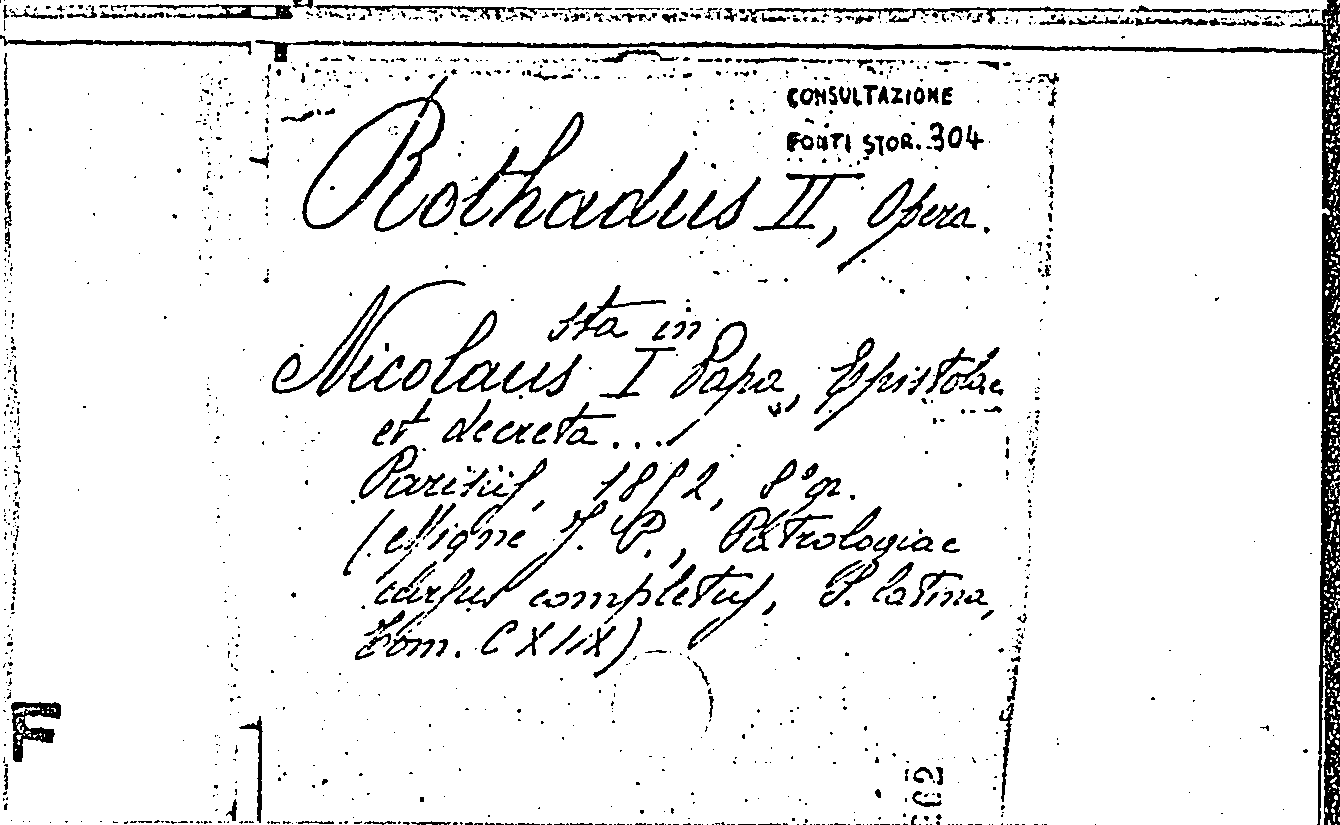 CONSULTAZIONE
FONTI STOR. 304
Rothadus II, Opera.
sta in
Nicolaus I Papa, Epistolae
et decreta...
Parisiis, 1852, 8° gr.
(Migne J. P., Patrologiae
cursus completus, P. latina,
Tom. CXIX)
F